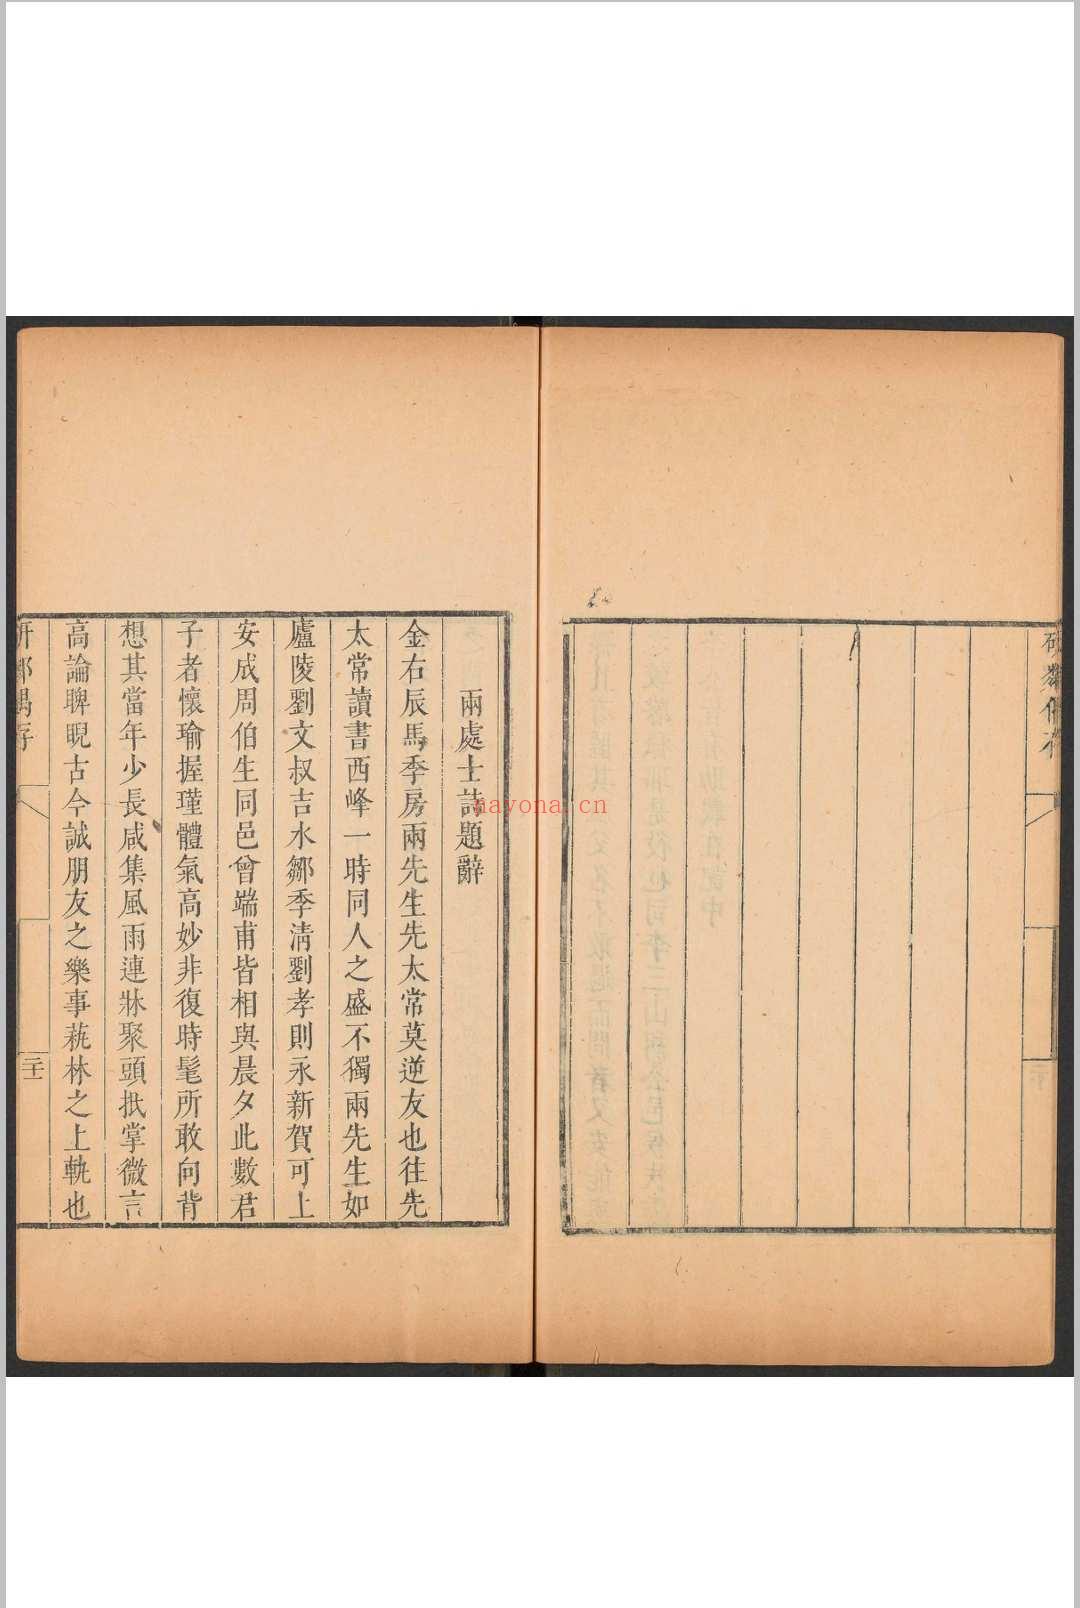 兩處士詩題辭
金右辰馬季房兩先生先太常莫逆友也往先
太常讀書西峰一時同人之盛不獨兩先生如
廬陵劉文叔吉水鄒季清劉孝則永新賀可上
安成周伯生同邑曾端甫皆相與晨夕此數君
子者懷瑜握瑾體氣高妙非復時髦所敢向背
想其當年少長咸集風雨連牀聚頭抵掌微言
高論睥睨古今誠朋友之樂事蓺林之上軌也
二十一
nayona.cn